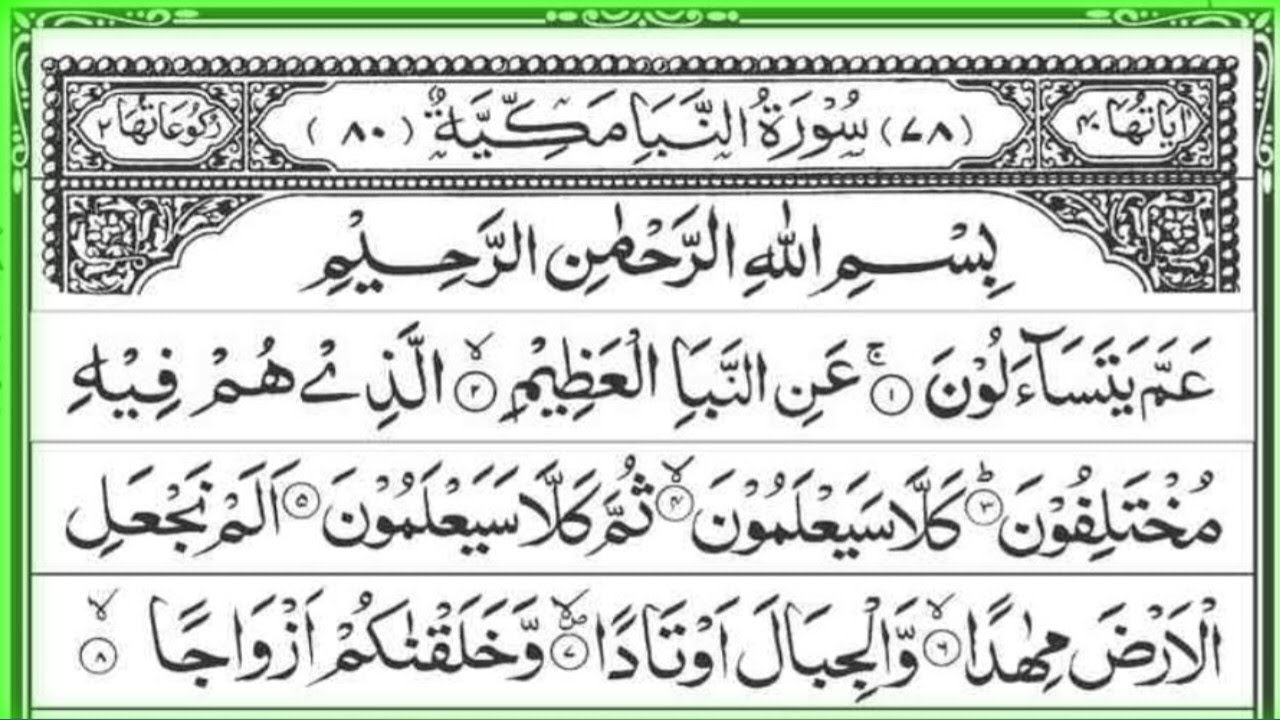 اٰيَاتُهَا ٤٠ (٧٨) سُوْرَةُ النَّبَاِ مَكِّيَّةٌ (٨٠) رُكُوْعَاتُهَا ٢
بِسْمِ اللّٰهِ الرَّحْمٰنِ الرَّحِيْمِ
عَمَّ يَتَسَآءَلُوْنَ ۚ ﴿١﴾ عَنِ النَّبَاِ الْعَظِيْمِ ۙ ﴿٢﴾ الَّذِيْ هُمْ فِيْهِ
مُخْتَلِفُوْنَ ؕ ﴿٣﴾ كَلَّا سَيَعْلَمُوْنَ ۙ ﴿٤﴾ ثُمَّ كَلَّا سَيَعْلَمُوْنَ ﴿٥﴾ اَلَمْ نَجْعَلِ
الْاَرْضَ مِهٰدًا ۙ ﴿٦﴾ وَّالْجِبَالَ اَوْتَادًا ۪ۙ ﴿٧﴾ وَّخَلَقْنٰكُمْ اَزْوَاجًا ۙ ﴿٨﴾